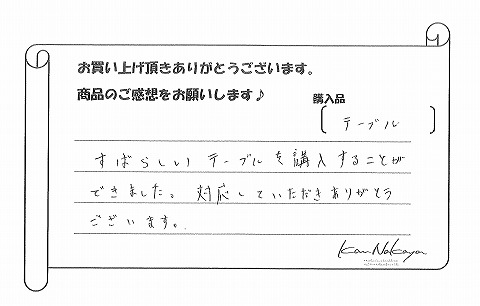 お買い上げ頂きありがとうございます。
商品のご感想をお願いします♪
購入品
テーブル
すばらしい テーブルを購入することが
できました。対応していただきありがとう
ございます。